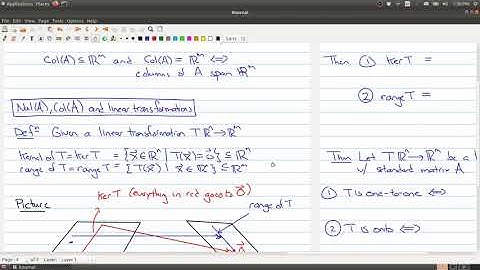 Applications Places
Xournal
File Edit View Journal Tools Options Help
Col(A) ⊆ ℝᵐ and Col(A) = ℝᵐ ⟺
columns of A span ℝᵐ
Nul(A), Col(A) and linear transformations
Defⁿ: Given a linear transformation T: ℝⁿ→ℝᵐ
kernel of T = ker T = {x⃗ ∈ ℝⁿ | T(x⃗) = 0⃗} ⊆ ℝⁿ
range of T = range T = {T(x⃗) | x⃗ ∈ ℝⁿ} ⊆ ℝᵐ
Picture
ker T (everything in red goes to 0⃗)
range of T
0⃗
Thm ① ker T =
② range T =
Thm Let T: ℝⁿ→ℝᵐ be a l
w/ standard matrix A
① T is one-to-one ⟺
② T is onto ⟺
Page
Layer: Layer 1
Xournal